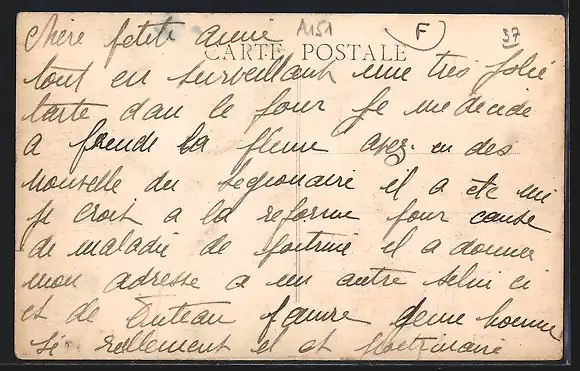 Chère petite amie A151 F 37
CARTE POSTALE
tout en surveillant une tres jolie
tarte dan le four je me decide
a prende la plume avez. eu des
nouvelle du legionaire il a etc mi
je croit a la reforme pour cause
de maladie de poitrine il a donner
mon adresse a un autre selui ci
et de pauvre jeune homme
si rellement il et poitrinaire